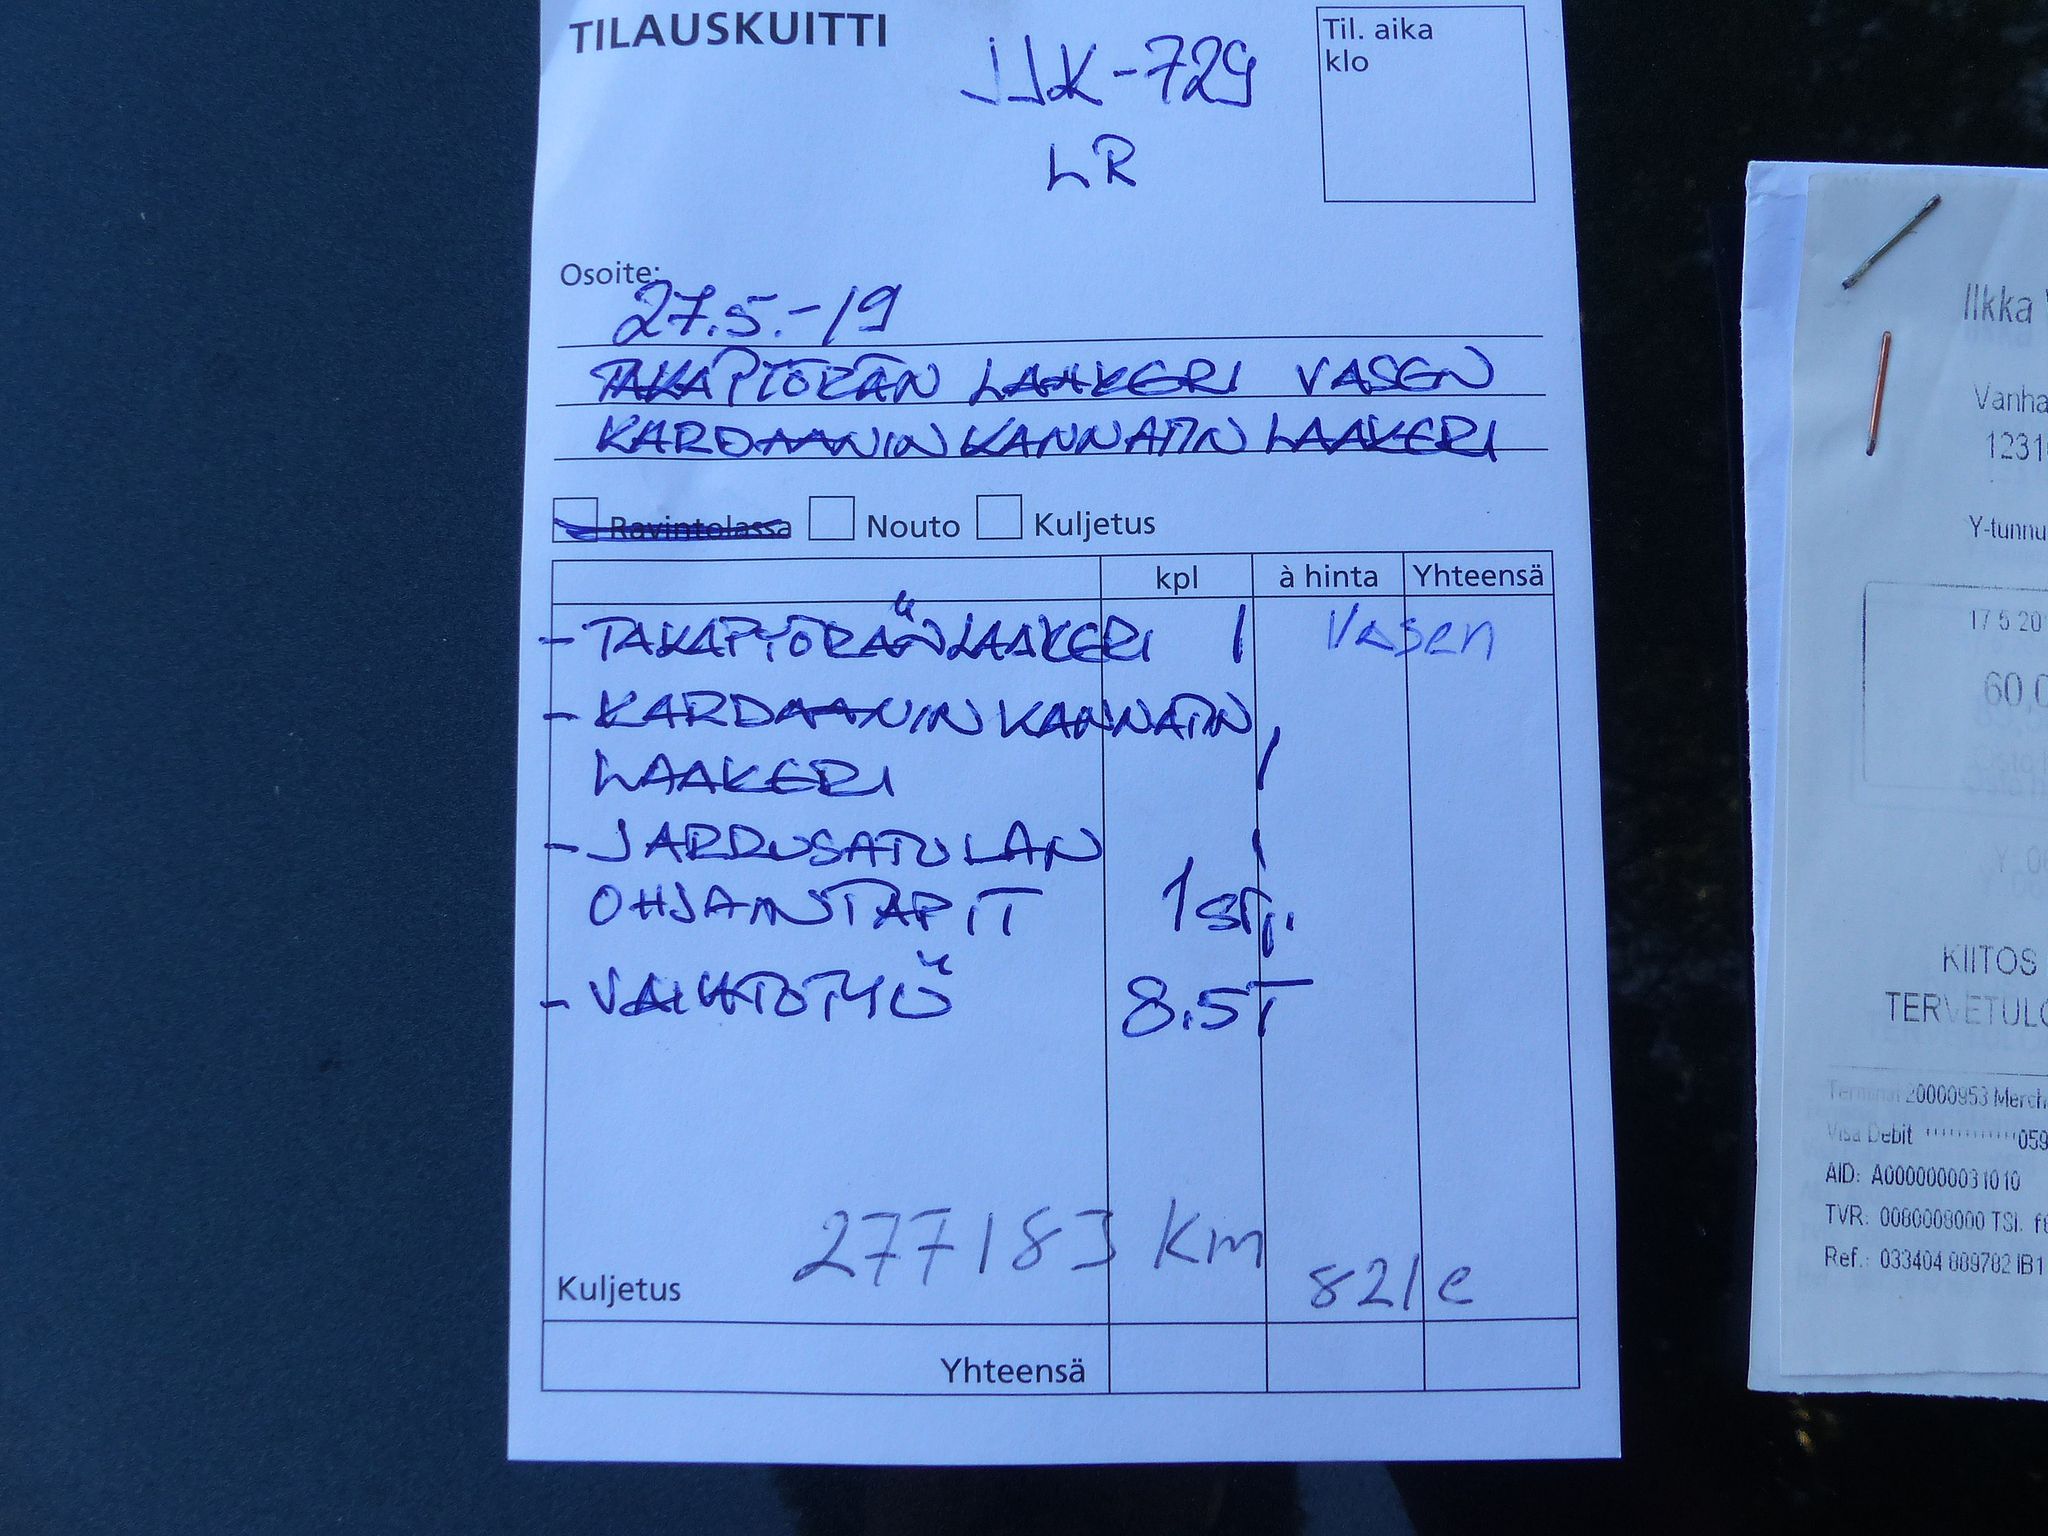 TILAUSKUITTI
JJK-729
LR
Til. aika
klo
Osoite:
27.5.-19
TAKAPYÖRÄN LAAKERI VASEN
KARDAANIN KANNATIN LAAKERI
Ravintolassa Nouto Kuljetus
kpl à hinta Yhteensä
- TAKAPYÖRÄNLAAKERI 1 Vasen
- KARDAANIN KANNATIN
LAAKERI 1
- JARRUSATULAN
OHJAINTAPIT 1 srj.
- VAIHTOTYÖ 8.5T
277183 Km
Kuljetus 821 e
Yhteensä
Ilkka
Vanha
1231
Y-tunnu
17 5 20
60,0
KIITOS
TERVETULO
Terminal 20000953 Merch
Visa Debit ············059
AID: A0000000031010
TVR: 0080008000 TSI: f8
Ref.: 033404 889782 IB1